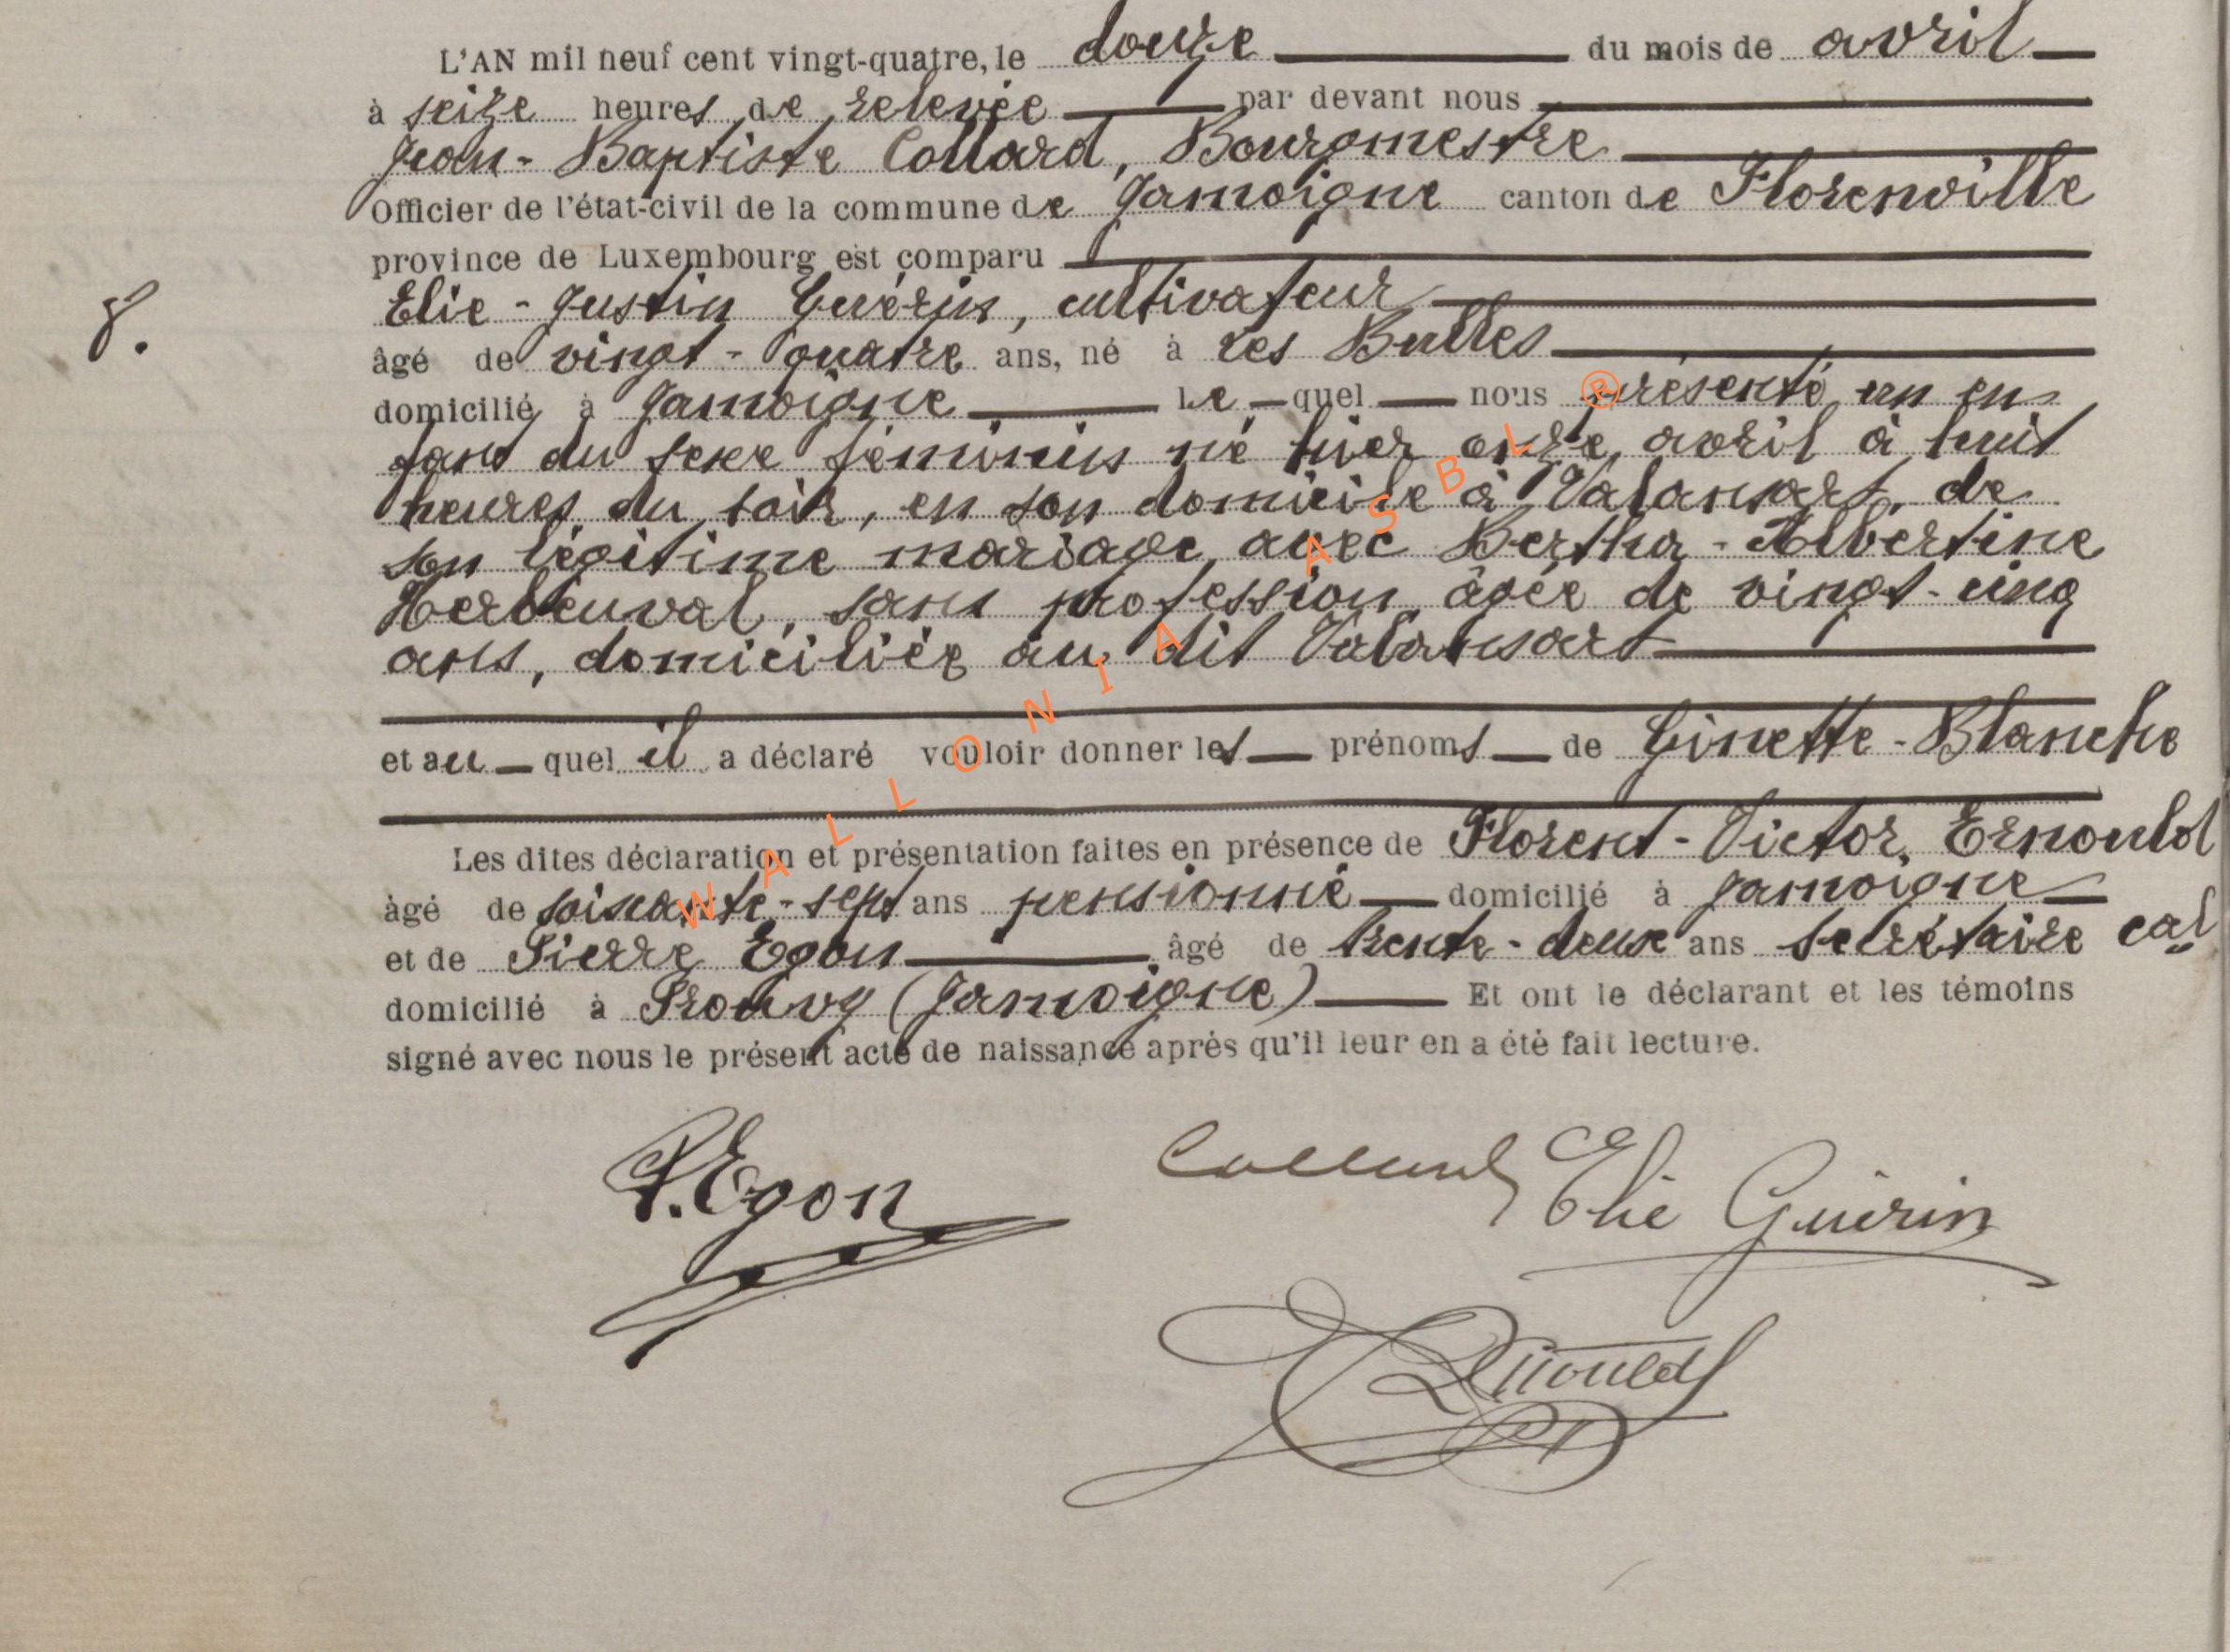 L'AN mil neuf cent vingt-quatre, le douze du mois de avril
à seize heures de relevée par devant nous
Jean-Baptiste Collard, Bourgmestre
Officier de l'état-civil de la commune de Jamoigne canton de Florenville
province de Luxembourg est comparu
Elie-Justin Guérin, cultivateur
8.
âgé de vingt-quatre ans, né à Les Bulles
domicilié à Jamoigne Le quel nous présenté un en
fant du sexe féminin né hier onze avril à huit
heures du soir, en son domicile à Valansart, de
son légitime mariage avec Bertha-Albertine
Herbeuval, sans profession, âgée de vingt-cinq
ans, domiciliée au dit Valansart
et au quel il a déclaré vouloir donner les prénoms de Ginette-Blanche
Les dites déclaration et présentation faites en présence de Florent-Victor, Ernould
âgé de soixante-sept ans pensionné domicilié à Jamoigne
et de Pierre Egon âgé de trente-deux ans secrétaire cal
domicilié à Prouvy (Jamoigne) Et ont le déclarant et les témoins
signé avec nous le présent acte de naissance après qu'il leur en a été fait lecture.
P. Egon Collard Elie Guérin
Ernould
WALLONIA ASBL ®